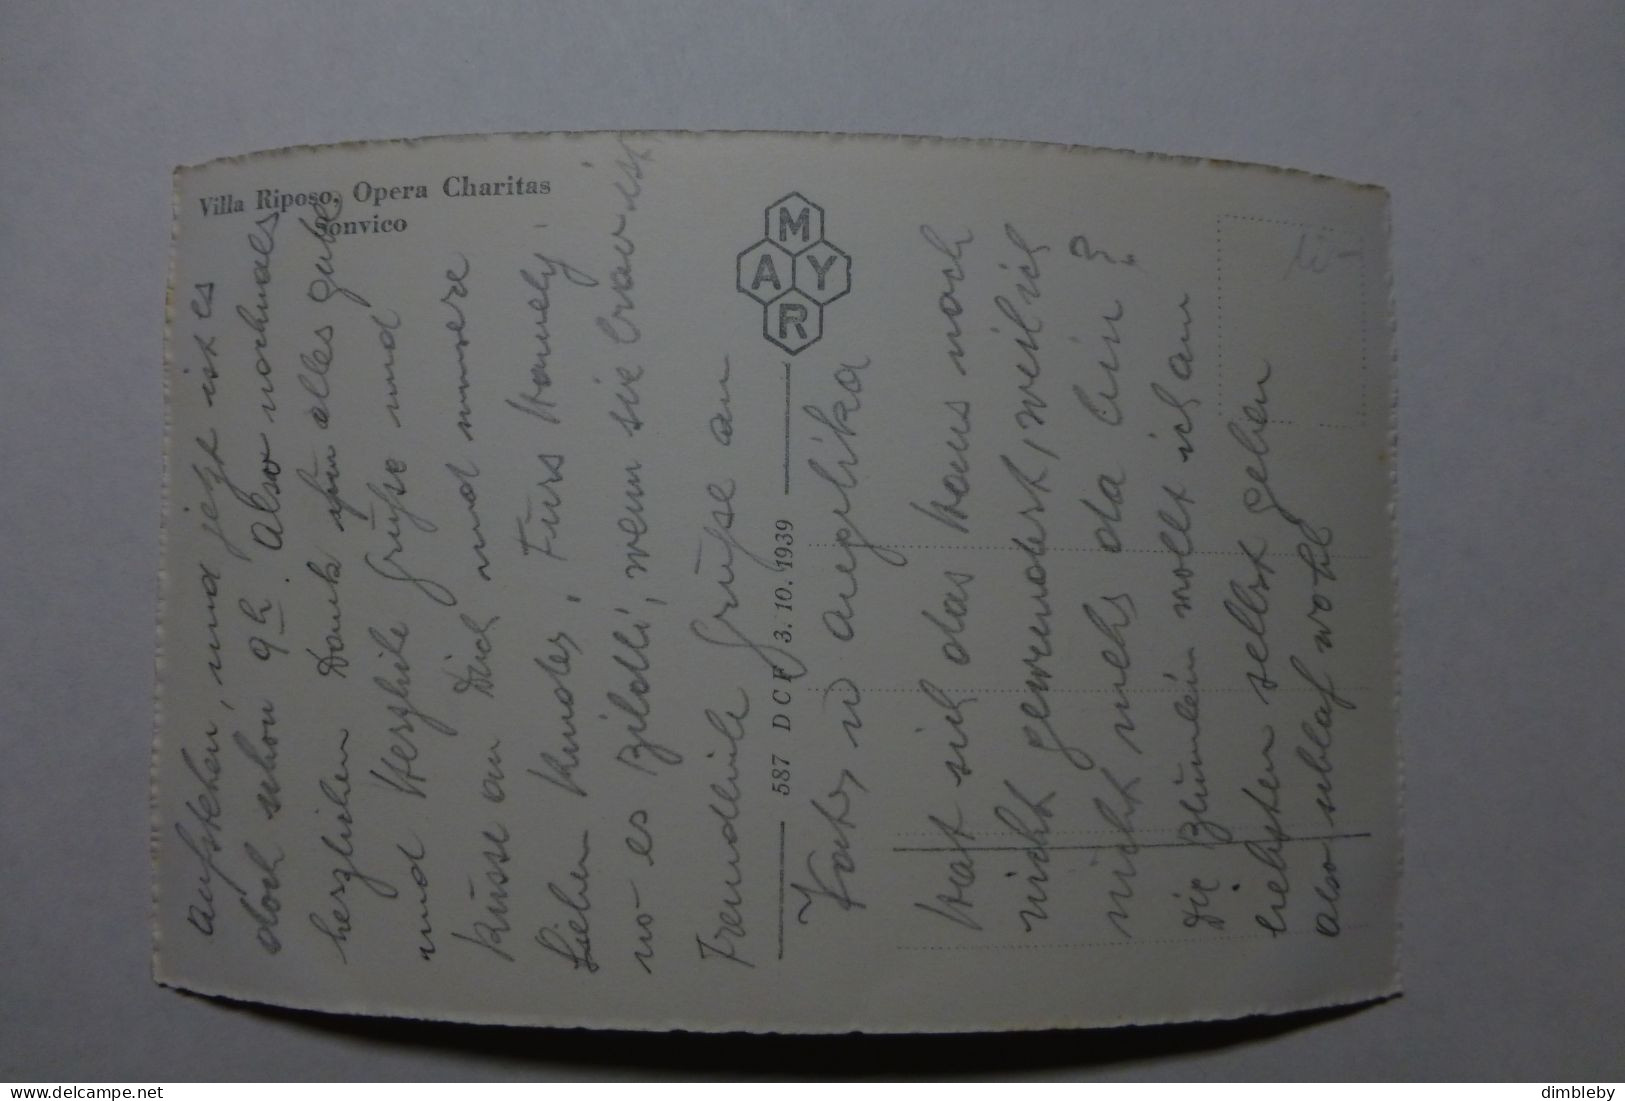 Villa Riposo, Opera Charitas
Sonvico
MAYR
587 D C F 3. 10. 1939
aufstehen, und jetzt ist es
doch schon 9 h. Also nochmals
herzlichen Dank für alles gute
und Herzliche Grüsse und
Küsse an Dich und unsere
lieben Kinder. Fürs
wo es wenn sie brav ist,
Freundliche Grüsse an
Angelika
Hat sich das Haus noch
nicht gewundert, weil ich
nicht mehr da bin?
Die Blümlein wollt ich am
liebsten selbst geben
also schlaf wohl
delcampe.net
dimbleby